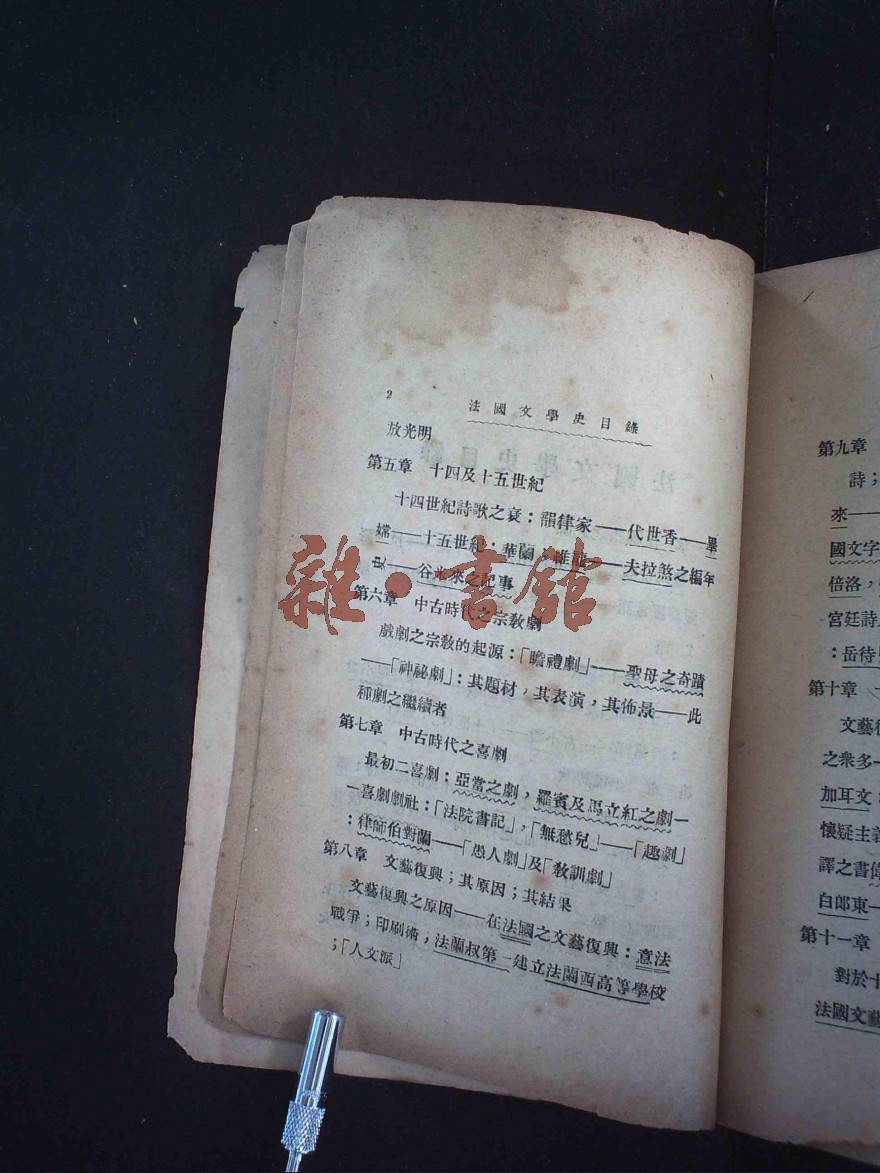 2
法國文學史目錄
放光明
第五章 十四及十五世紀
十四世紀詩歌之衰：韻律家——代世香——畢
嫦——十五世紀：華蘭；維龍——夫拉煞之編年
史——谷米來之記事
第六章 中古時代之宗敎劇
戲劇之宗敎的起源：「瞻禮劇」——聖母之奇蹟
——「神祕劇」：其題材，其表演，其佈景——此
種劇之繼續者
第七章 中古時代之喜劇
最初二喜劇：亞當之劇，羅賓及馬立紅之劇—
—喜劇劇社：「法院書記」，「無愁兒」——「趣劇」
：律師伯對蘭——「愚人劇」及「敎訓劇」
第八章 文藝復興；其原因；其結果
文藝復興之原因——在法國之文藝復興：意法
戰爭；印刷術，法蘭叔第一建立法蘭西高等學校
；「人文派」
第九章
詩；
來——
國文字
倍洛，
宮廷詩
：岳待
第十章
文藝復
之衆多—
加耳文：
懷疑主義
譯之書偉
白郎東—
第十一章
對於十
法國文藝
雜·書館